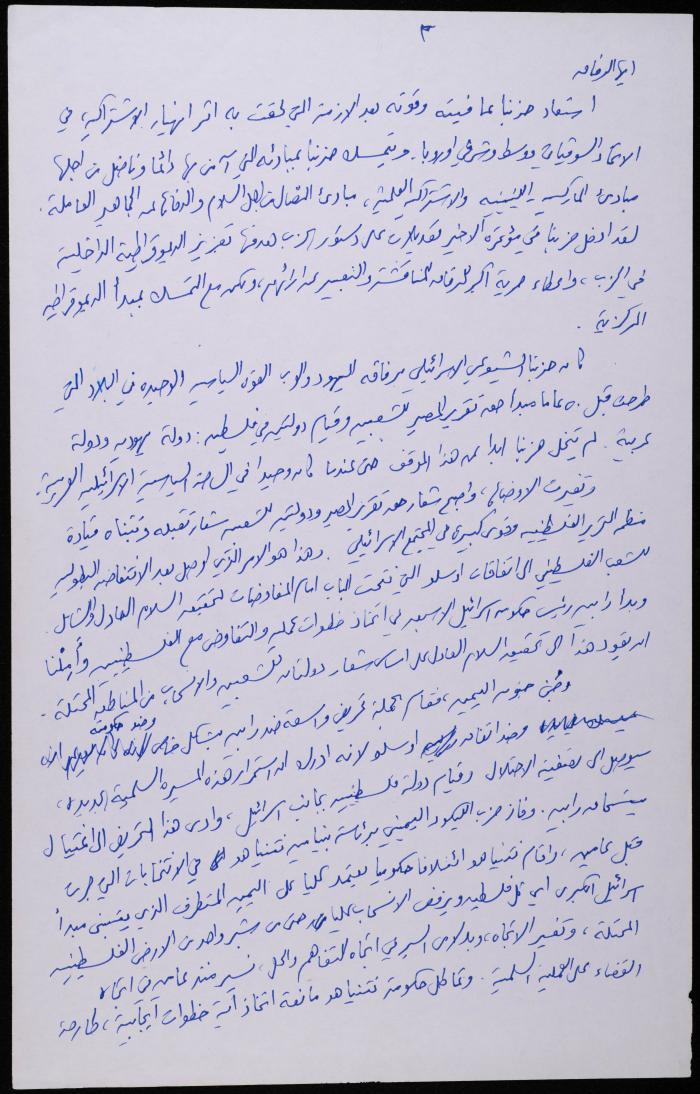 ٣
ايها الرفاق
استعاد حزبنا عافيته وقوته بعد الازمة التي لحقت به اثر انهيار الاشتراكية في
الاتحاد السوفياتي ووسط وشرقي اوروبا. ويتمسك حزبنا بمبادئه التي آمن بها دائما وناضل من اجلها
مبادئ الماركسية اللينينية والاشتراكية العلمية، مبادئ النضال من اجل السلام والدفاع عن الجماهير العاملة.
لقد ادخل حزبنا في مؤتمره الاخير تعديلات على دستور الحزب هدفها تعزيز الديموقراطية الداخلية
في الحزب، واعطاء حرية اكبر للرفاق للمناقشة والتعبير عن ارائهم، ولكن مع التمسك بمبدأ الديموقراطيه
المركزية.
كان حزبنا الشيوعي الاسرائيلي برفاقه اليهود والعرب القوة السياسية الوحيده في البلاد التي
طرحت قبل ٥٠ عاما مبدأ حق تقرير المصير للشعبين وقيام دولتين في فلسطين: دولة يهودية ودولة
عربية. لم يتخل حزبنا ابدا عن هذا الموقف حتى عندما كان وحيدا في الساحة السياسية الاسرائيليه والعربية.
وتغيرت الاوضاع، واصبح شعار حق تقرير المصير ودولتين للشعبين شعارا تقبله وتتبناه قيادة
منظمة التحرير الفلسطينيه وقوى كبيرة في المجتمع الاسرائيلي. وهذا هو الامر الذي اوصل بعد الانتفاضه البطوليه
للشعب الفلسطيني الى اتفاقات اوسلو التي فتحت الباب امام المفاوضات لتحقيق السلام العادل والشامل.
وبدأ رابين رئيس حكومة اسرائيل الاسبق في اتخاذ خطوات عملية والتفاوض مع الفلسطينيين وأمِلْنا
ان يقود هذا الى تحقيق السلام العادل على اساس شعار دولتان للشعبين والانسحاب من المناطق المحتلة.
وجُنّ جنون اليمين، فقام بحملة تحريض واسعة ضد رابين بشكل خاص وضد حكومته
وضد اتفاق اوسلو لانه ادرك ان استمرار هذه المسيرة السلمية الجديدة،
سيوصل الى تصفية الاحتلال وقيام دولة فلسطينيه بجانب اسرائيل، وادى هذا التحريض الى اغتيال
رابين. وفاز حزب الليكود اليميني برئاسة بنيامين نتنياهو في الانتخابات التي جرت
قبل عامين، واقام نتنياهو ائتلافا حكوميا يعتمد كليا على اليمين المتطرف الذي يتبنى مبدأ
اسرائيل الكبرى اي كل فلسطين ويرفض الانسحاب عمليا حتى من شبر واحد من الارض الفلسطينيه
المحتلة، وتغير الاتجاه، وبدلا من السير في اتجاه التفاهم والحل، نسير منذ عامين في اتجاه
القضاء على العملية السلمية. وتماطل حكومة نتنياهو مانعة اتخاذ أية خطوات ايجابية، طارحة